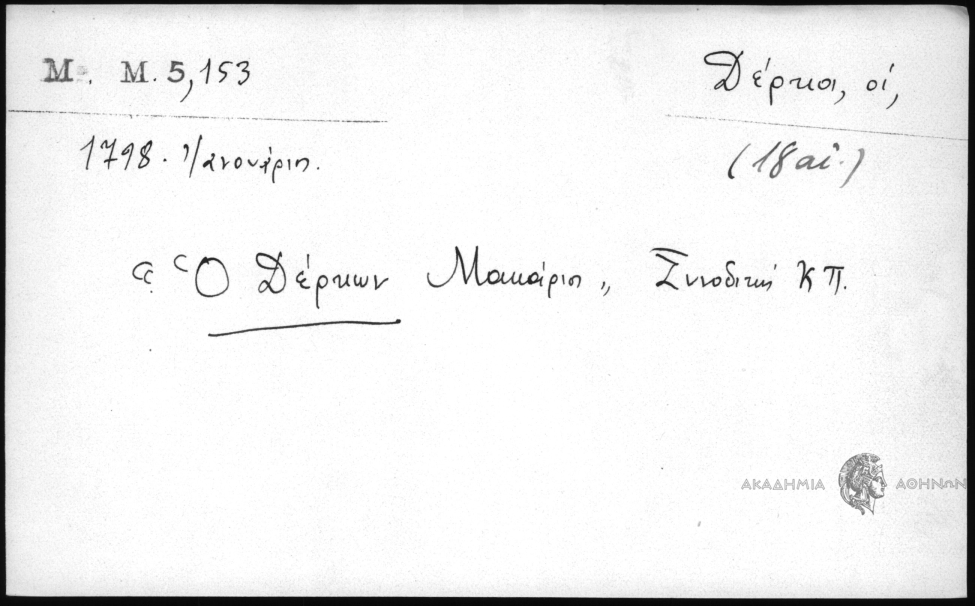 Μ. Μ. 5,153
Δέρκοι, οἱ,
1798. Ἰανουάριος.
(18 αἰ.)
« Ὁ Δέρκων Μακάριος „ Συνοδική ΚΠ.
ΑΚΑΔΗΜΙΑ ΑΘΗΝΩΝ